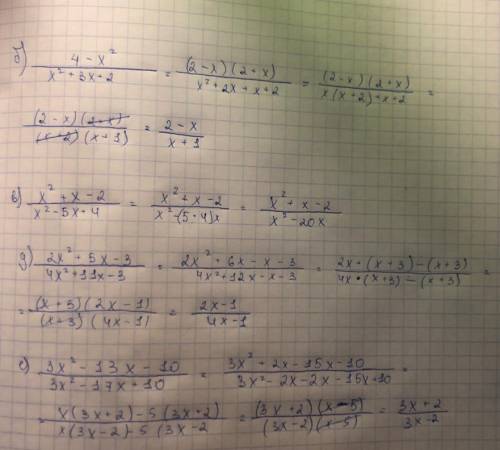 б) (4 - x²)/(x² + 3x + 2) = ((2-x)(2+x))/(x² + 2x + x + 2) = ((2-x)(2+x))/(x(x+2)+x+2) =
((2-x)(2+x))/((x+2)(x+1)) = (2-x)/(x+1)
в) (x² + x - 2)/(x² - 5x - 4) = (x² + x - 2)/(x² - (5-4)x) = (x² + x - 2)/(x² - 20x)
д) (2x² + 5x - 3)/(4x² + 11x - 3) = (2x² + 6x - x - 3)/(4x² + 12x - x - 3) = (2x · (x+3) - (x+3))/(4x · (x+3) - (x+3)) =
= ((x+3)(2x-1))/((x+3)(4x-1)) = (2x-1)/(4x-1)
е) (3x² - 13x - 10)/(3x² - 17x + 10) = (3x² + 2x - 15x - 10)/(3x² - 2x - 2x - 15x + 10) =
= (x(3x+2) - 5(3x+2))/(x(3x-2) - 5(3x-2) = ((3x+2)(x-5))/((3x-2)(x-5)) = (3x+2)/(3x-2)